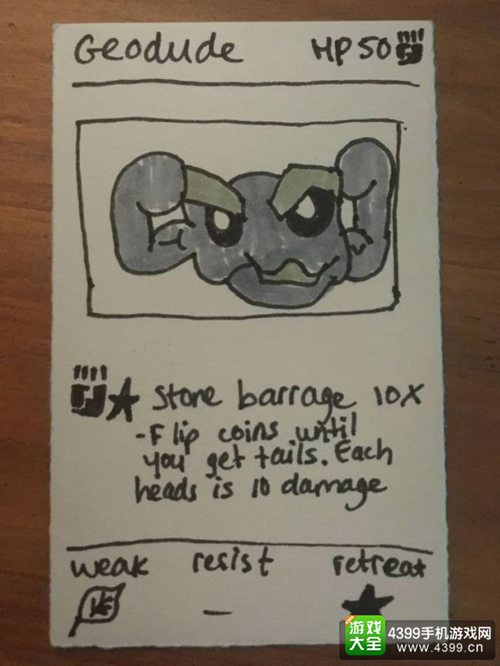 Geodude HP 50
Stone barrage 10X
-Flip coins until
you get tails. Each
heads is 10 damage
weak resist retreat
-
游戏大全 4399手机游戏网
www.4399.cn